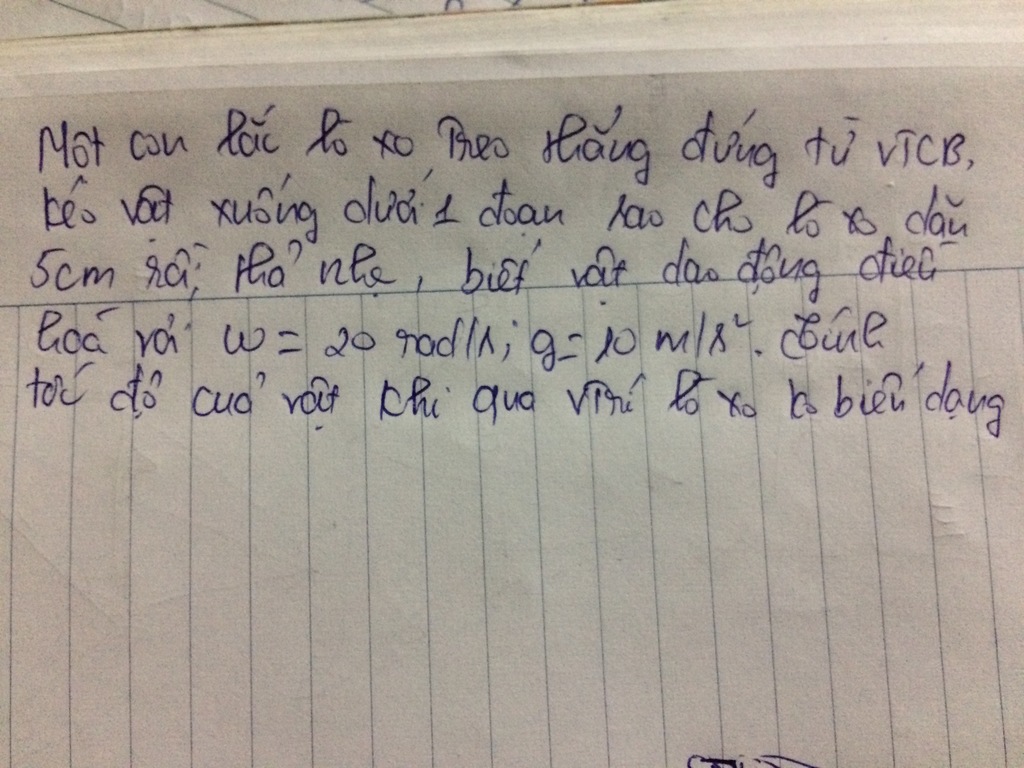 Một con lắc lò xo treo thẳng đứng từ VTCB,
kéo vật xuống dưới 1 đoạn sao cho lò xo dãn
5cm rồi thả nhẹ, biết vật dao động điều
hoà với w = 20 rad/s, g = 10 m/s². Tính
tốc độ của vật khi qua vtrí lò xo ko biến dạng